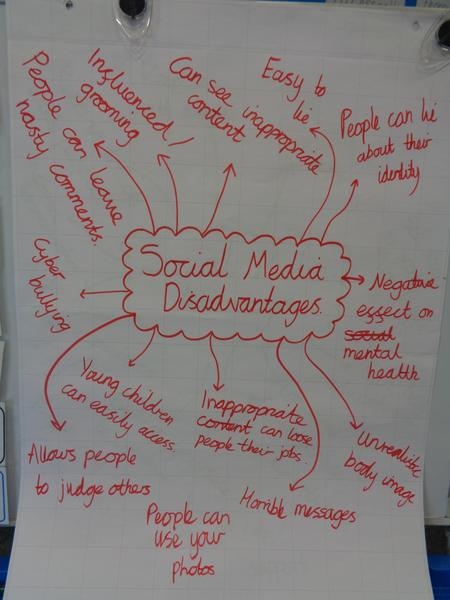 Social Media
Disadvantages.
People can leave
nasty comments.
Influenced /
grooming
Can see inappropriate
content
Easy to
lie
People can lie
about their
identity
Negative
effect on
social
mental
health
Unrealistic
body image
Horrible messages
Inappropriate
content can lose
people their jobs.
People can
use your
photos
Young children
can easily access.
Allows people
to judge others
Cyber
bullying